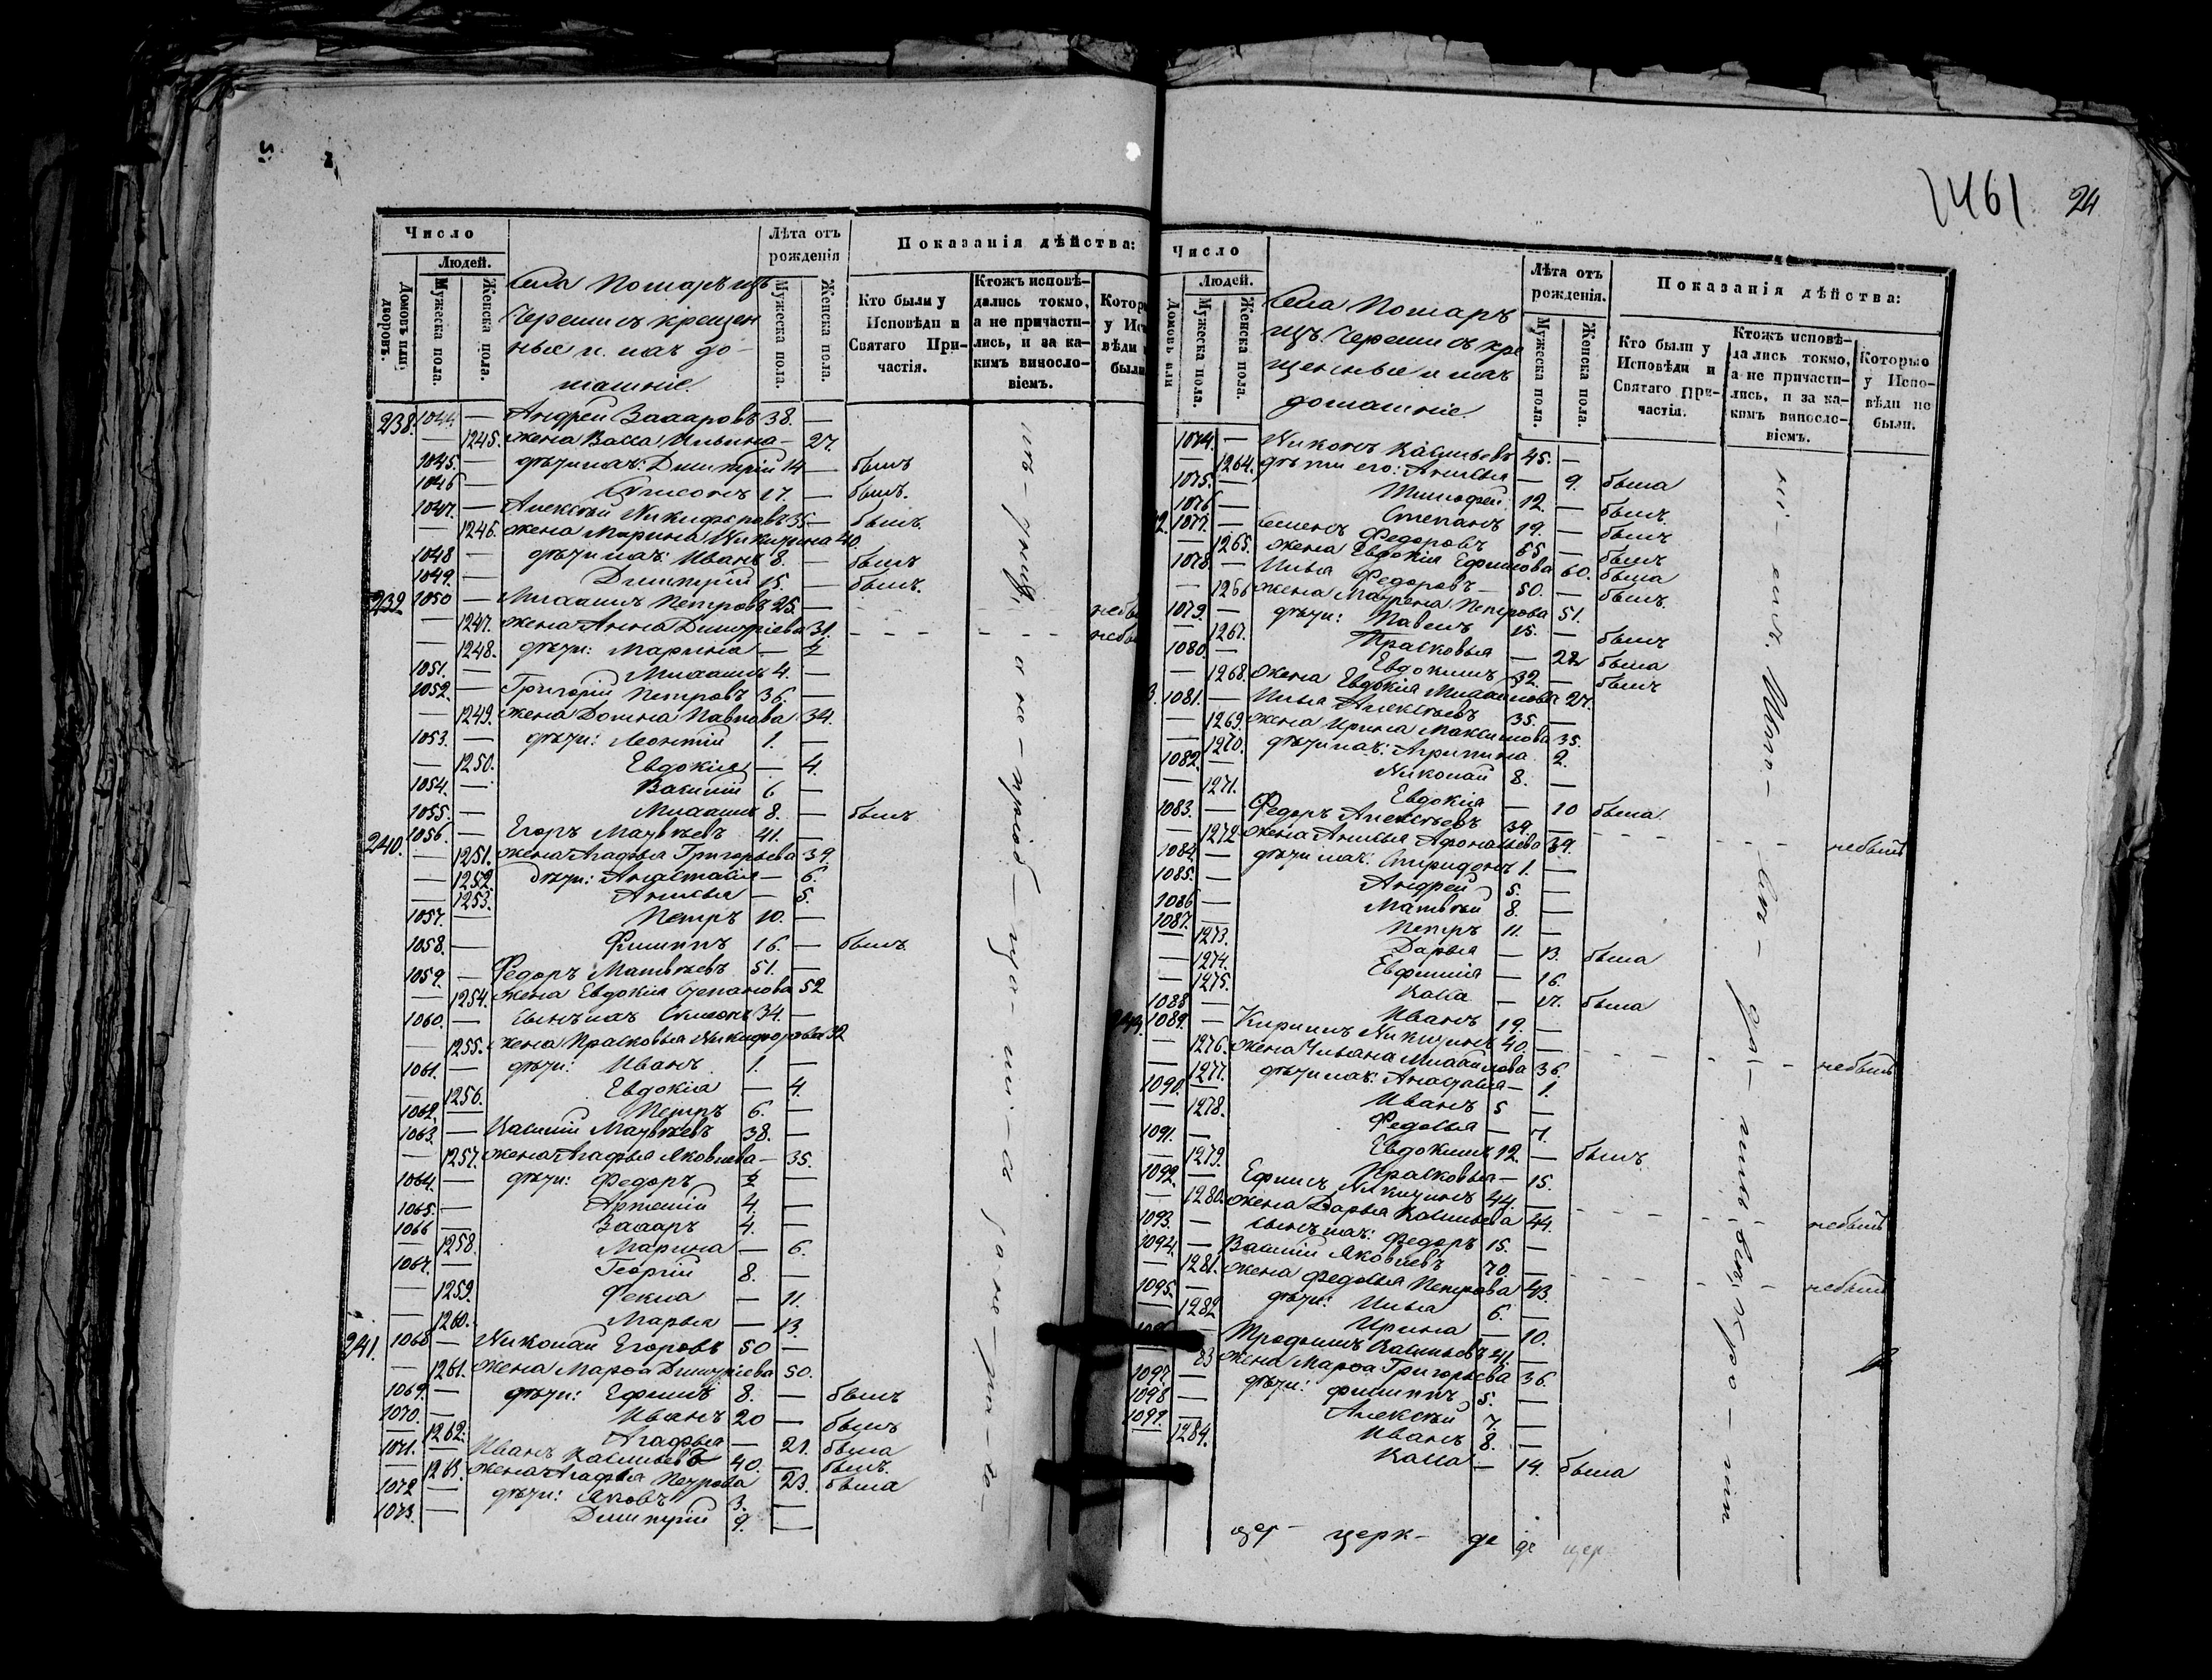 Число
Людей.
Домовъ или дворовъ.
Мужеска пола.
Женска пола.
Села Пошаръ ицъ
Черемисъ крещен
ные и ихъ до-
машніе.
Лѣта отъ рожденія
Мужеска пола.
Женска пола.
Показанія дѣйства:
Кто были у Исповѣди и Святаго Причастія.
Ктожъ исповѣдались токмо, а не причастились, и за какимъ винословіемъ.
238. 1044. — Андрей Захаровъ 38. —
— 1245. жена Васса Ильина — 27.
1045. — дѣти ихъ: Димитрій 14 — былъ
1046 — Симеонъ 17. — былъ.
1047. — Алексѣй Никифоровъ 35 — былъ.
— 1246. жена Марина Никитина 40.
1048 — дѣти ихъ: Иванъ 8. — былъ
1049. — Димитрій 15. — былъ.
239 1050 — Михаилъ Петровъ 25. —
— 1247. жена Анна Димитріева 31.
— 1248. дѣти: Марина — 2
1051. — Михаилъ 4. —
1052. — Григорій Петровъ 36. —
— 1249. жена Домна Павлова 34.
1053. — дѣти: Леонтій 1. —
— 1250. Евдокія — 4.
1054. — Василій 6 —
1055. — Михаилъ 8. — былъ
240. 1056. — Егоръ Матвѣевъ 41. —
— 1251. жена Агафья Григорьева 39.
— 1252. дѣти: Анастасія — 6.
— 1253. Анисья — 5.
1057. — Петръ 10. —
1058. — Филиппъ 16. — былъ
1059. — Федоръ Матвѣевъ 51. —
— 1254. жена Евдокія Степанова 52
1060. — сынъ ихъ Симеонъ 34. —
— 1255. жена Прасковья Никифорова 32
1061. — дѣти: Иванъ 1. —
— 1256. Евдокія — 4.
1062. — Петръ 6. —
1063. — Василій Матвѣевъ 38. —
— 1257. жена Агафья Яковлева — 35.
1064. — дѣти: Федоръ 2 —
1065. — Артемій 4. —
1066 — Захаръ 4. —
— 1258. Марина — 6.
1067. — Георгій 8. —
— 1259. Фекла — 11.
— 1260. Марья — 13.
241. 1068 — Николай Егоровъ 50 —
— 1261. жена Марѳа Димитріева 50.
1069. — дѣти: Ефимъ 8. — былъ
1070. — Иванъ 20 — былъ
— 1262. Агафья — 21. была
1071. — Иванъ Васильевъ 40. — былъ.
— 1263. жена Агафья Петрова 23. была
1072 — дѣти: Яковъ 3. —
1073. — Димитрій 9. —
1461 24
Число
Людей.
Домовъ или
Мужеска пола.
Женска пола.
Села Пошаръ
ицъ. Черемисъ кре
щенные и ихъ
домашніе.
Лѣта отъ рожденія.
Мужеска пола.
Женска пола.
Показанія дѣйства:
Кто были у Исповѣди и Святаго Причастія.
Ктожъ исповѣдались токмо, а не причастились, и за какимъ винословіемъ.
Которые у Исповѣди не были.
1074. — Никонъ Васильевъ 45. —
— 1264. дѣти его: Анисья — 9. была
1075. — Тимофей 12. — былъ.
1076 — Степанъ 19. — былъ
1077. — Семенъ Федоровъ 65 — былъ
— 1265. жена Евдокія Ефимова 60. была
1078. — Илья Федоровъ — 50. — былъ.
— 1266 жена Матрена Петрова 51.
1079. — дѣти: Павелъ 15. — былъ
— 1267. Прасковья — 22 была
1080. — Евдокимъ 32. — былъ
— 1268. жена Евдокія Михаилова 27.
1081. — Илья Алексѣевъ 35. —
— 1269. жена Ирина Максимова 35.
— 1270. дѣти ихъ: Агрипина 2.
1082. — Николай 8. —
— 1271. Евдокія — 10 была
1083. — Федоръ Алексѣевъ 39. — небылъ
— 1272 жена Анисья Афонасьева 39.
1084. — дѣти ихъ: Спиридонъ 1. —
1085. — Андрей 5. —
1086 — Матвѣй 8. —
1087. — Петръ 11. —
— 1273. Дарья — 13. была
— 1274. Евфимія — 16.
— 1275. Васса — 17. была
1088 — Иванъ 19. —
1089. — Кириллъ Никитинъ 40. — небылъ
— 1276. жена Ульяна Михаилова 36.
— 1277. дѣти ихъ: Анастасія — 1.
1090. — Иванъ 5 —
— 1278. Федосья — 7.
1091. — Евдокимъ 12. — былъ
— 1279. Прасковья — 15.
1092. — Ефимъ Никитинъ 44. — небылъ
— 1280. жена Дарья Васильева 44.
1093. — сынъ ихъ: Федоръ 15. —
1094. — Василій Яковлевъ 70. — небылъ
— 1281. жена Федосья Петрова 43.
1095. — дѣти: Илья 6. —
— 1282 Ирина — 10.
— Трофимъ Васильевъ 41. —
83 жена Марѳа Григорьева 36.
1097. — дѣти: Филиппъ 5. —
1098 — Алексѣй 7. —
1099. — Иванъ 8. —
— 1284. Васса — 14. была
цер- церк- де де цер